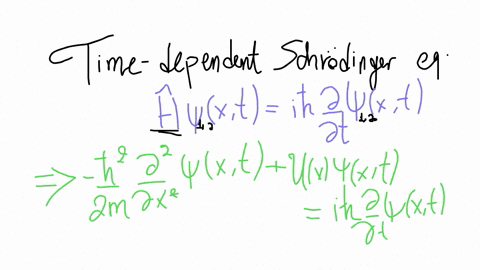 Time-dependent Schrödinger eq.
Ĥ ψ₁,₂(x,t) = iħ ∂/∂t ψ₁,₂(x,t)
=> -ħ²/2m ∂²/∂x² ψ(x,t) + U(x) ψ(x,t)
= iħ ∂/∂t ψ(x,t)